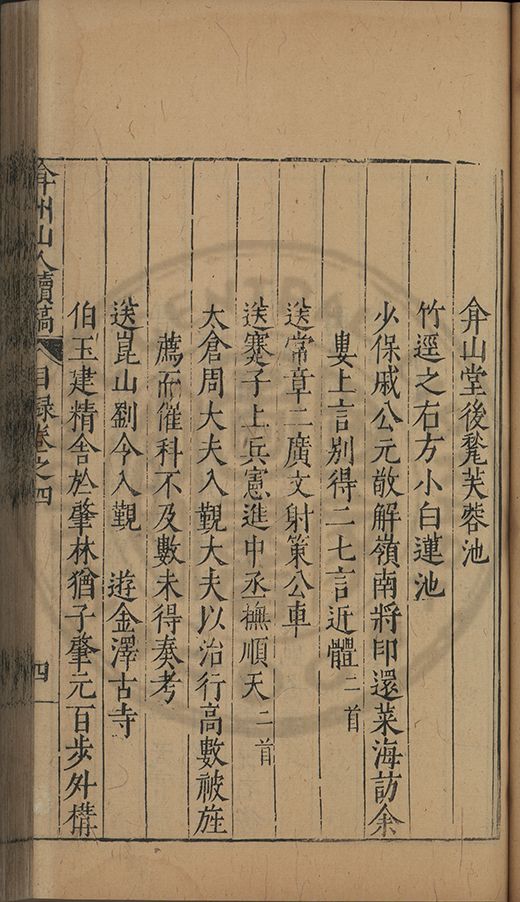 弇山堂後甃芙蓉池
竹逕之右方小白蓮池
少保戚公元敬解嶺南將印還萊海訪余
婁上言別得二七言近體二首
送常章二廣文射策公車
送蹇子上兵憲進中丞撫順天二首
太倉周大夫入覲大夫以治行高數被旌
薦而催科不及數未得奏考
送崑山劉令入覲　遊金澤古寺
伯玉建精舍於肇林猶子肇元百步外構
弇州山人續稿　目録卷之四　四